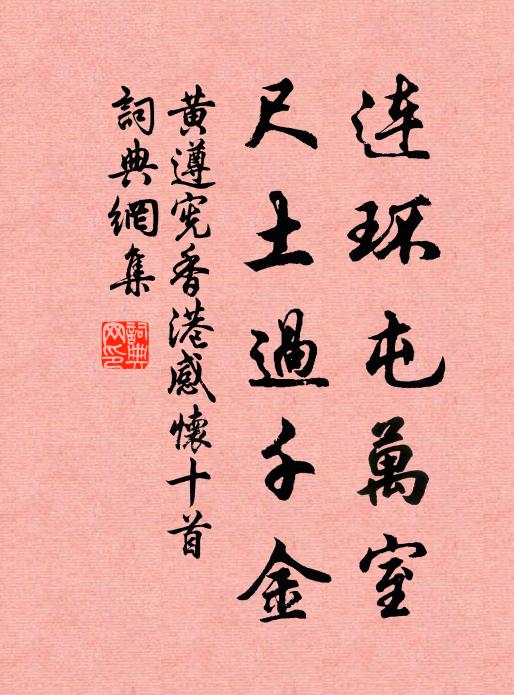 連环屯萬室
尺土過千金
黄遵宪香港感懷十首
詞典網集
詞典网印